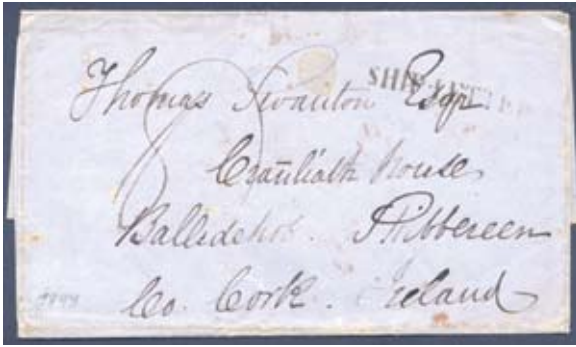 SHIP LETTER
Thomas Swanton Esqr
Cranliath house
Ballidehob. Skibbereen
Co. Cork. Ireland